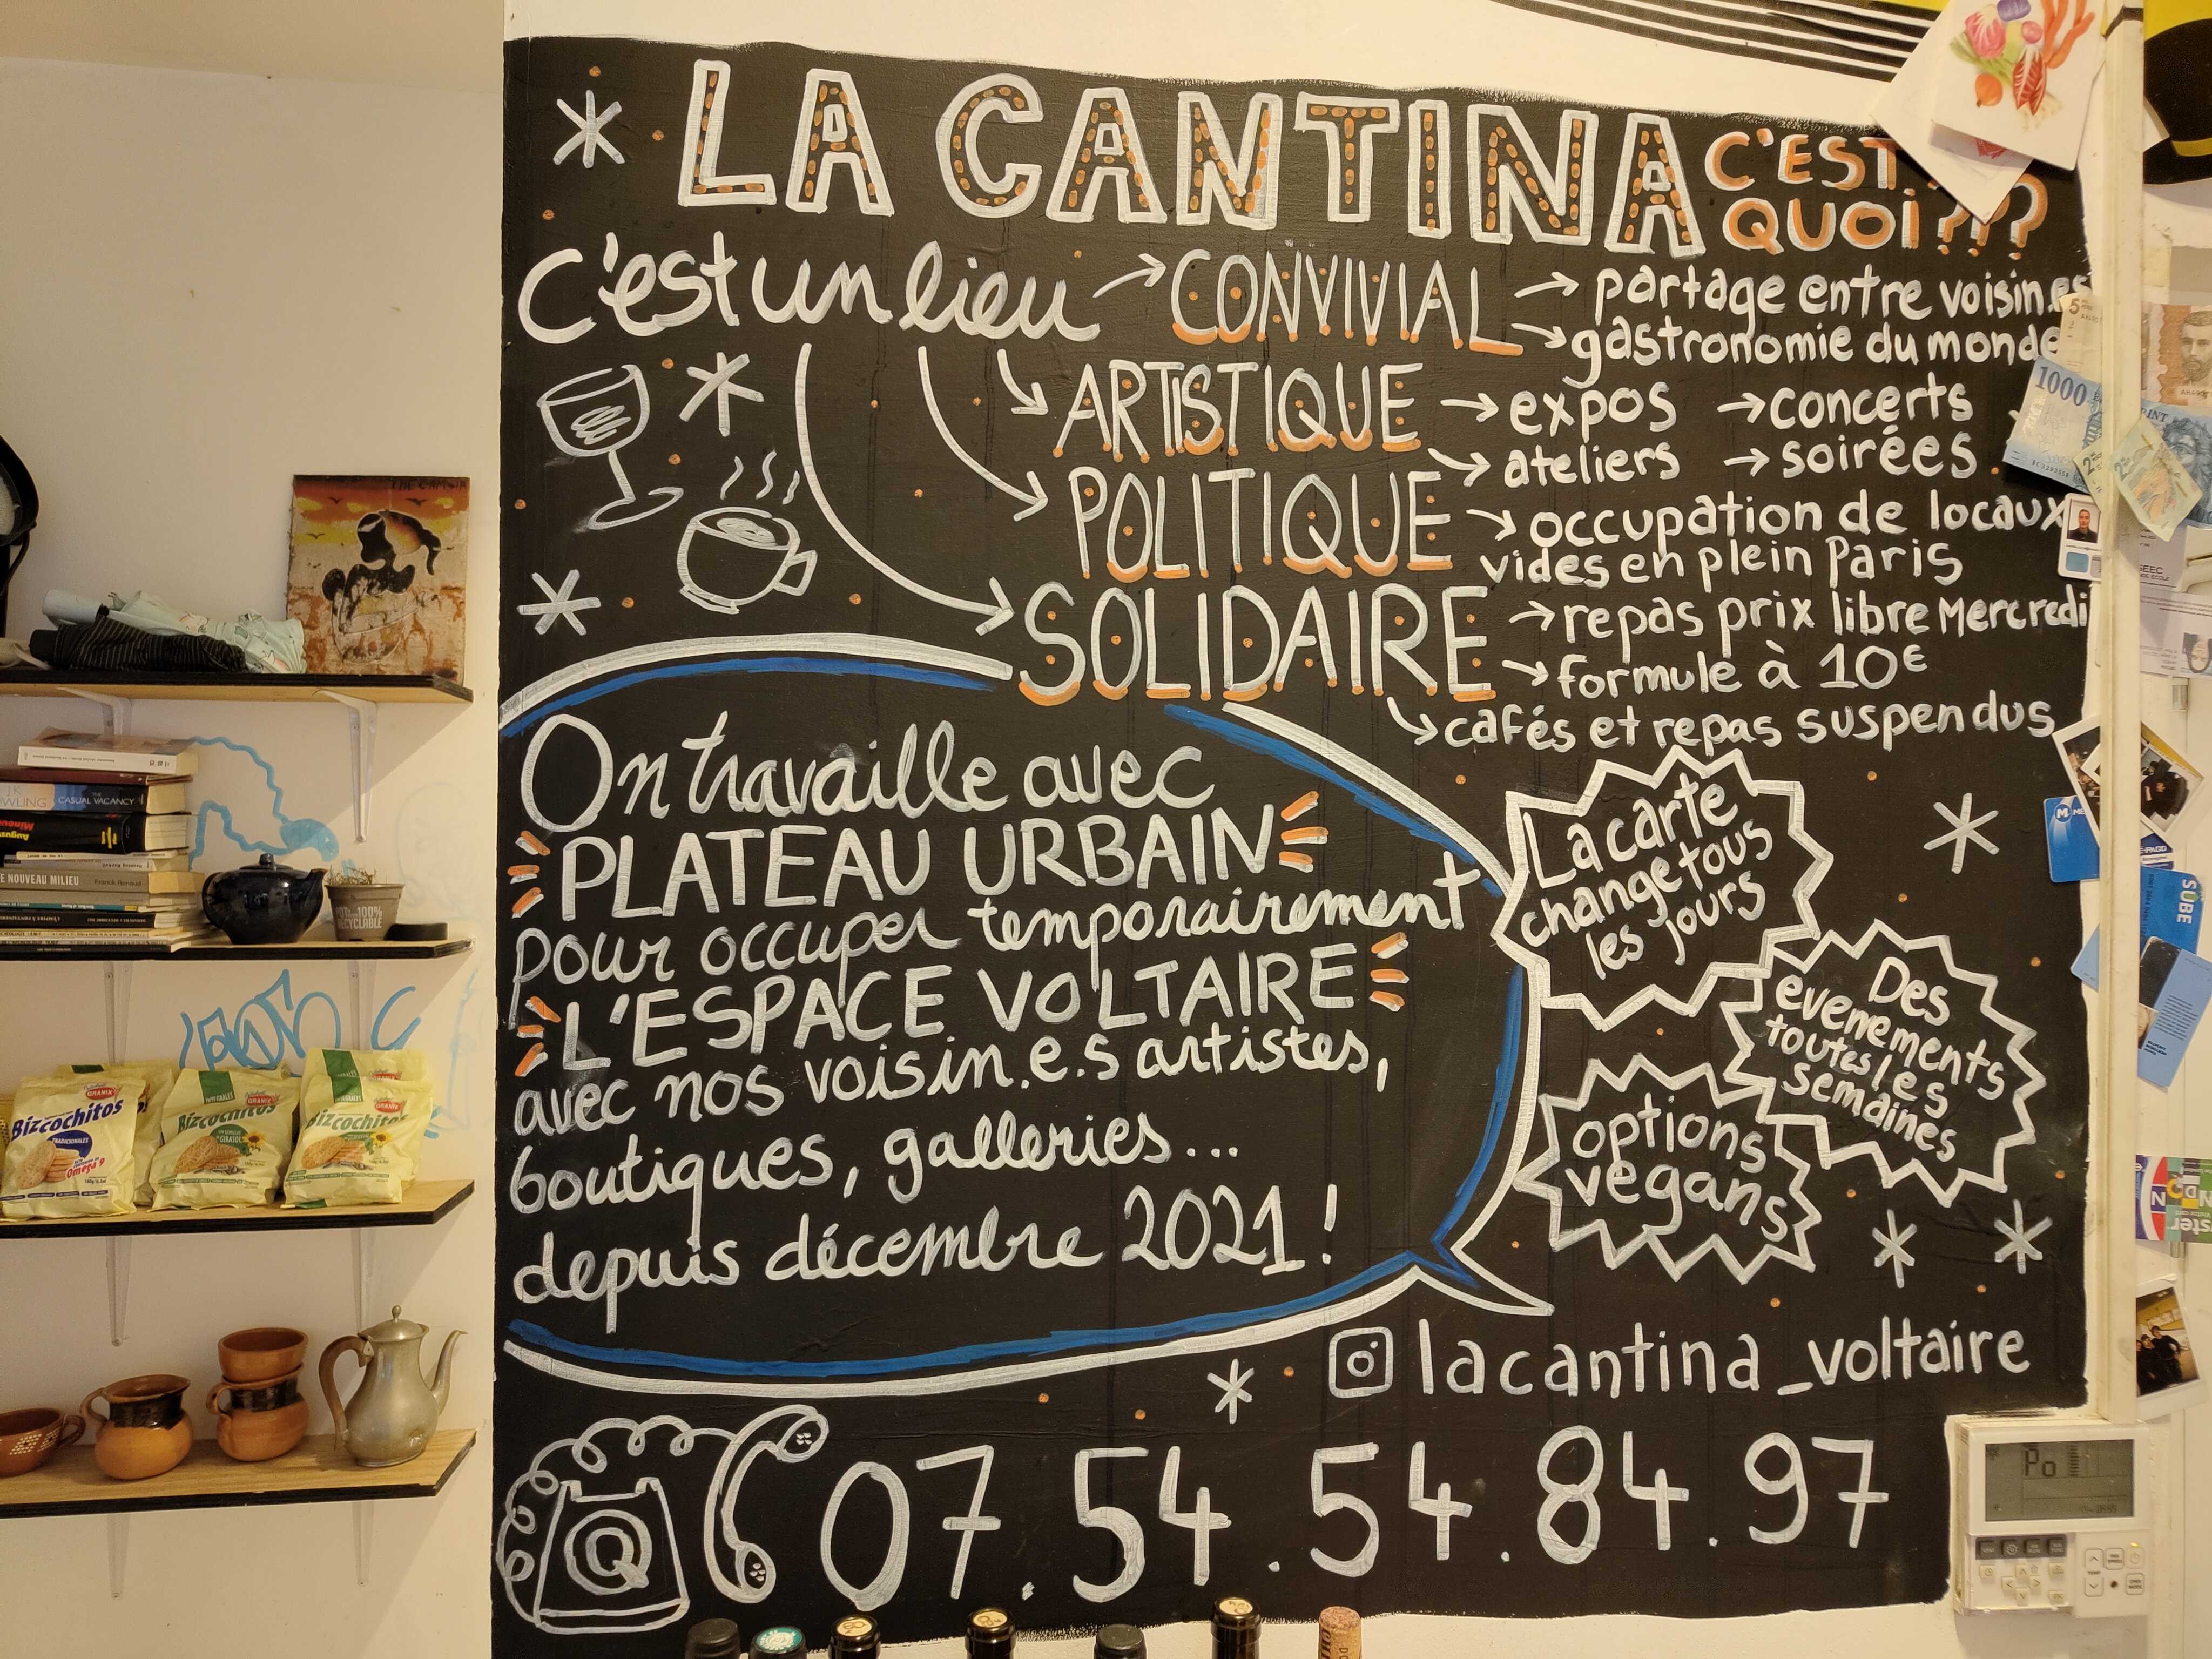 LA CANTINA C'EST
QUOI???
c'est un lieu → CONVIVIAL → partage entre voisin.es
→ gastronomie du monde
→ ARTISTIQUE → expos → concerts
→ ateliers → soirées
→ POLITIQUE → occupation de locaux
vides en plein Paris
→ SOLIDAIRE → repas prix libre Mercredi
→ formule à 10€
→ cafés et repas suspendus
On travaille avec
PLATEAU URBAIN
pour occuper temporairement
L'ESPACE VOLTAIRE
avec nos voisin.e.s artistes,
boutiques, galleries...
depuis décembre 2021!
La carte
change tous
les jours
Des
evenements
toutes les
semaines
options
vegans
lacantina_voltaire
07.54.54.84.97
THE GAMBIA
THE
CASUAL VACANCY
NOUVEAU MILIEU
100%
RECYCLABLE
GRANIX
Bizcochitos
TRADICIONALES
Omega 9
INTEGRALES
GRANIX
Bizcochitos
GIRASOL
GRANIX
Bizcochitos
5
1000
2
SUBE
Po